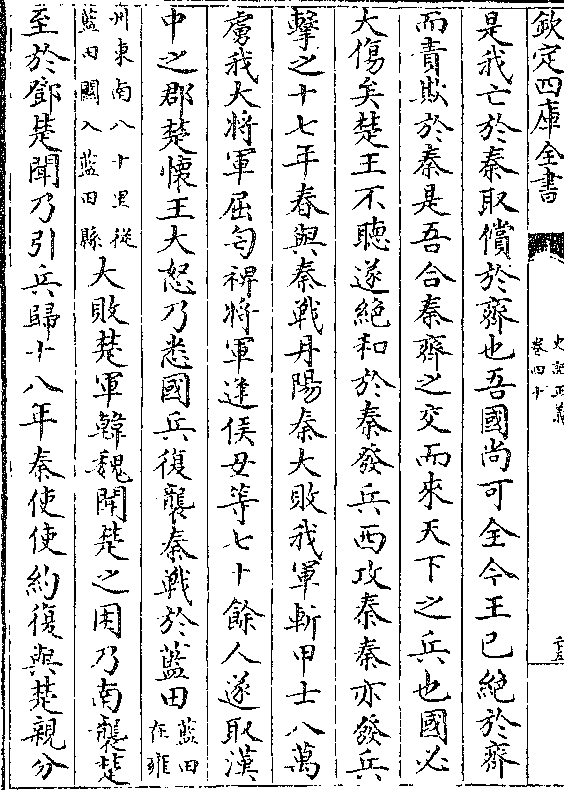 欽定四庫全書
史記正義
卷四十
是我亡於秦取償於齊也吾國尚可全今王已絶於齊
而責欺於秦是吾合秦齊之交而來天下之兵也國必
大傷矣楚王不聴遂絶和於秦發兵西攻秦秦亦發兵
擊之十七年春與秦戰丹陽秦大敗我軍斬甲士八萬
虜我大將軍屈匄禆將軍逢侯丑等七十餘人遂取漢
中之郡楚懷王大怒乃悉國兵復襲秦戰於藍田藍田在雍
州東南八十里從藍田關入藍田縣大敗楚軍韓魏聞楚之困乃南襲楚
至於鄧楚聞乃引兵歸十八年秦使使約復與楚親分